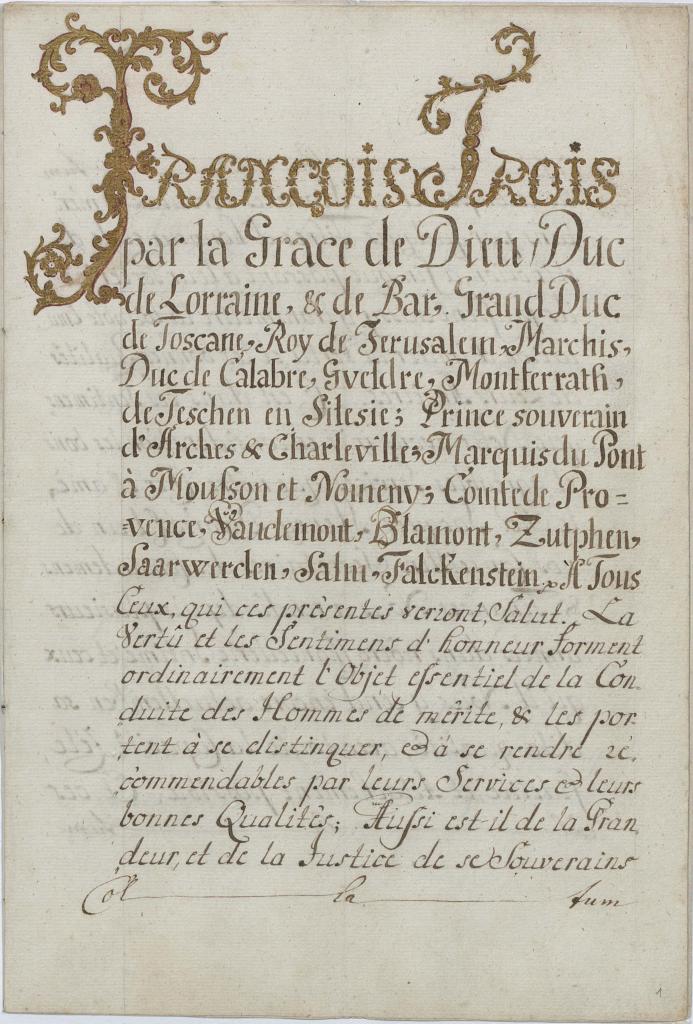 François Trois
par la Grace de Dieu, Duc
de Lorraine, & de Bar, Grand Duc
de Toscane, Roy de Jerusalem, Marchis,
Duc de Calabre, Gveldre, Montferrath,
de Teschen en Silesie; Prince souverain
d'Arches & Charleville; Marquis du Pont
à Moufson et Nomeny; Comte de Pro=
=vence, Vaudemont, Blamont, Zutphen,
Saarwerden, Salm, Falckenstein, A Tous
Ceux, qui ces présentes verront, Salut. La
Vertû et les Sentimens d'honneur forment
ordinairement l'Objet efsentiel de la Con
duite des Hommes de mérite, & les por
tent à se distinguer, & à se rendre ré,
commendables par leurs Services & leurs
bonnes Qualités; Aufsi est il de la Gran
deur, et de la Justice de se Souverains
Col la tum
1